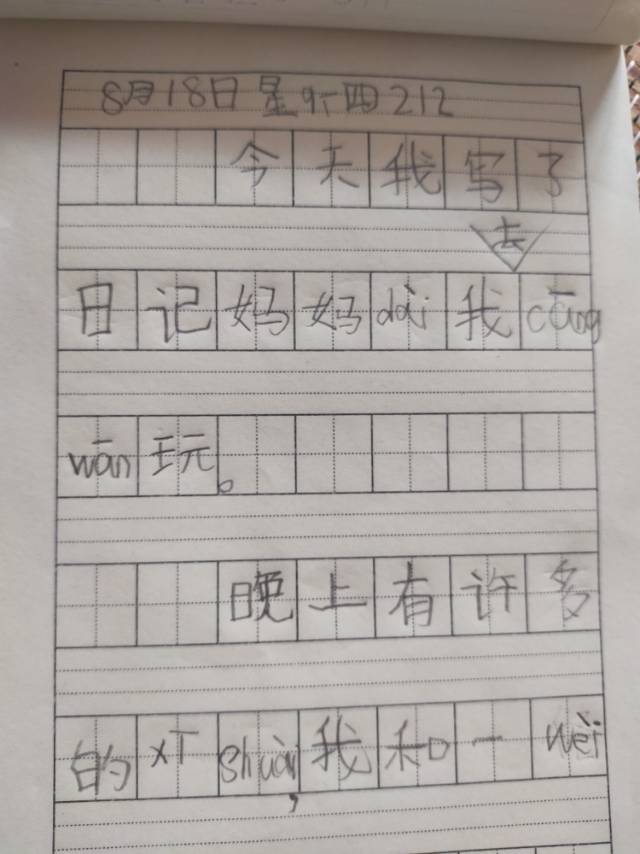 8月18日 星期四 212
今天我写了
去
日记妈妈dài我cāng
wān玩。
晚上有许多
的对shuài,我和一wèi